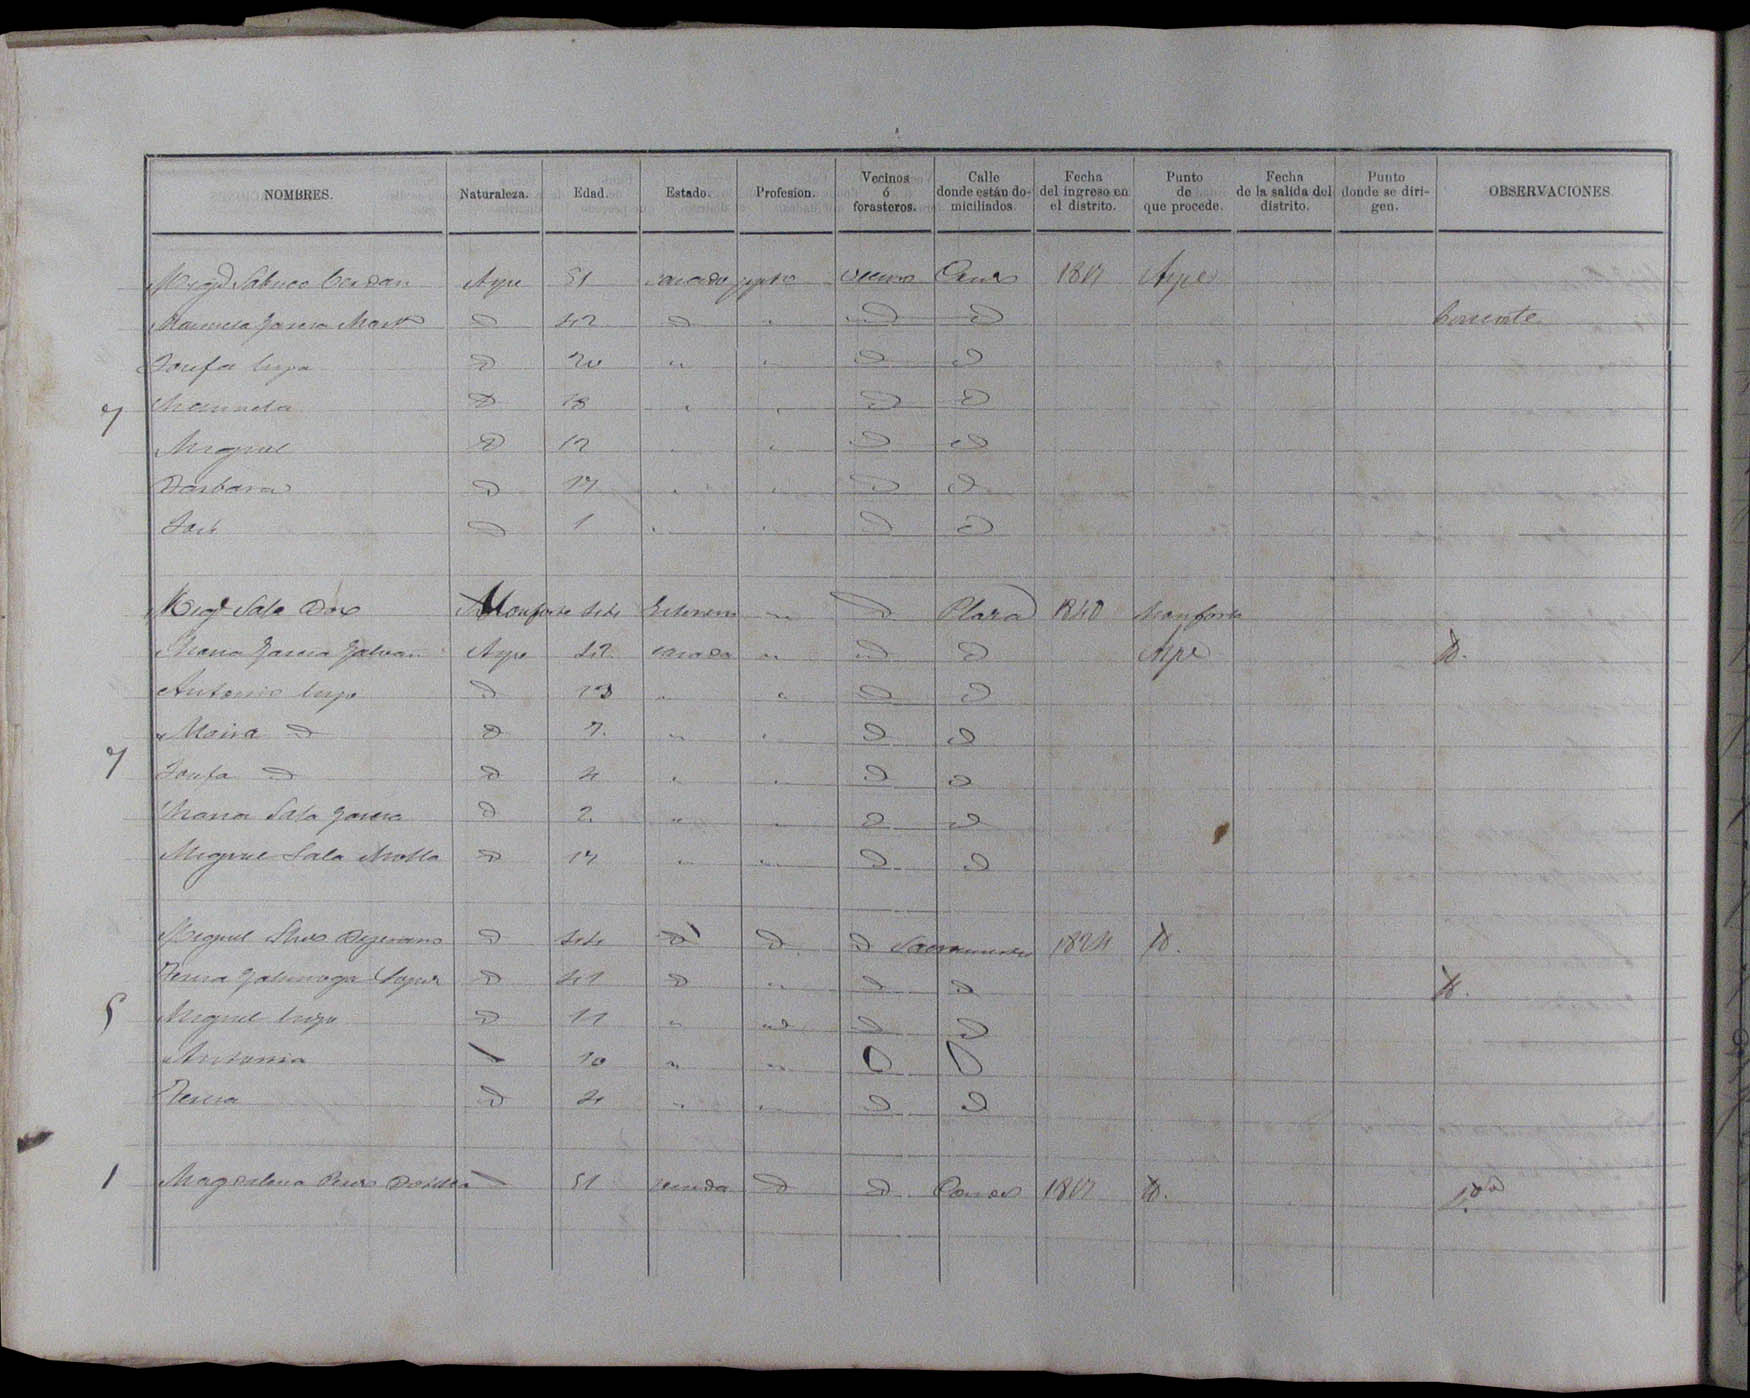 NOMBRES. Naturaleza. Edad. Estado. Profesion. Vecinos ó forasteros. Calle donde están domiciliados. Fecha del ingreso en el distrito. Punto de que procede. Fecha de la salida del distrito. Punto donde se dirigen. OBSERVACIONES.
Migl Sabuco Cerdan Aspe 51 casado vecino Cruz 1817 Aspe
Manuela Garcia D 42 D " D D Corriente
Josefa hija D 20 " " D D
7 Manuela D 18 " " D D
Miguel D 12 " D D
Barbara D 17 " " D D
José D 1 " " D D
Migl Sala Monforte 44 " D Plaza 1840 Monforte
Maria Garcia Galvan Aspe 42 casada " D D Aspe D.
Antonio hijo D 13 " " D D
Maria D D 7. " " D D
7 Josefa D D 4 " " D D
Maria Sala Garcia D 2. " " D D
Miguel Sala Molla D 17 " " D D
Miguel D 44 D D D Sacramento 1824 D.
Teresa D 41 D " D D D.
5 Miguel hijo D 11 " " D D
Antonia 10 " " D D
Teresa D 4 " " D D
1 Magdalena 51 viuda D D 1817 D.